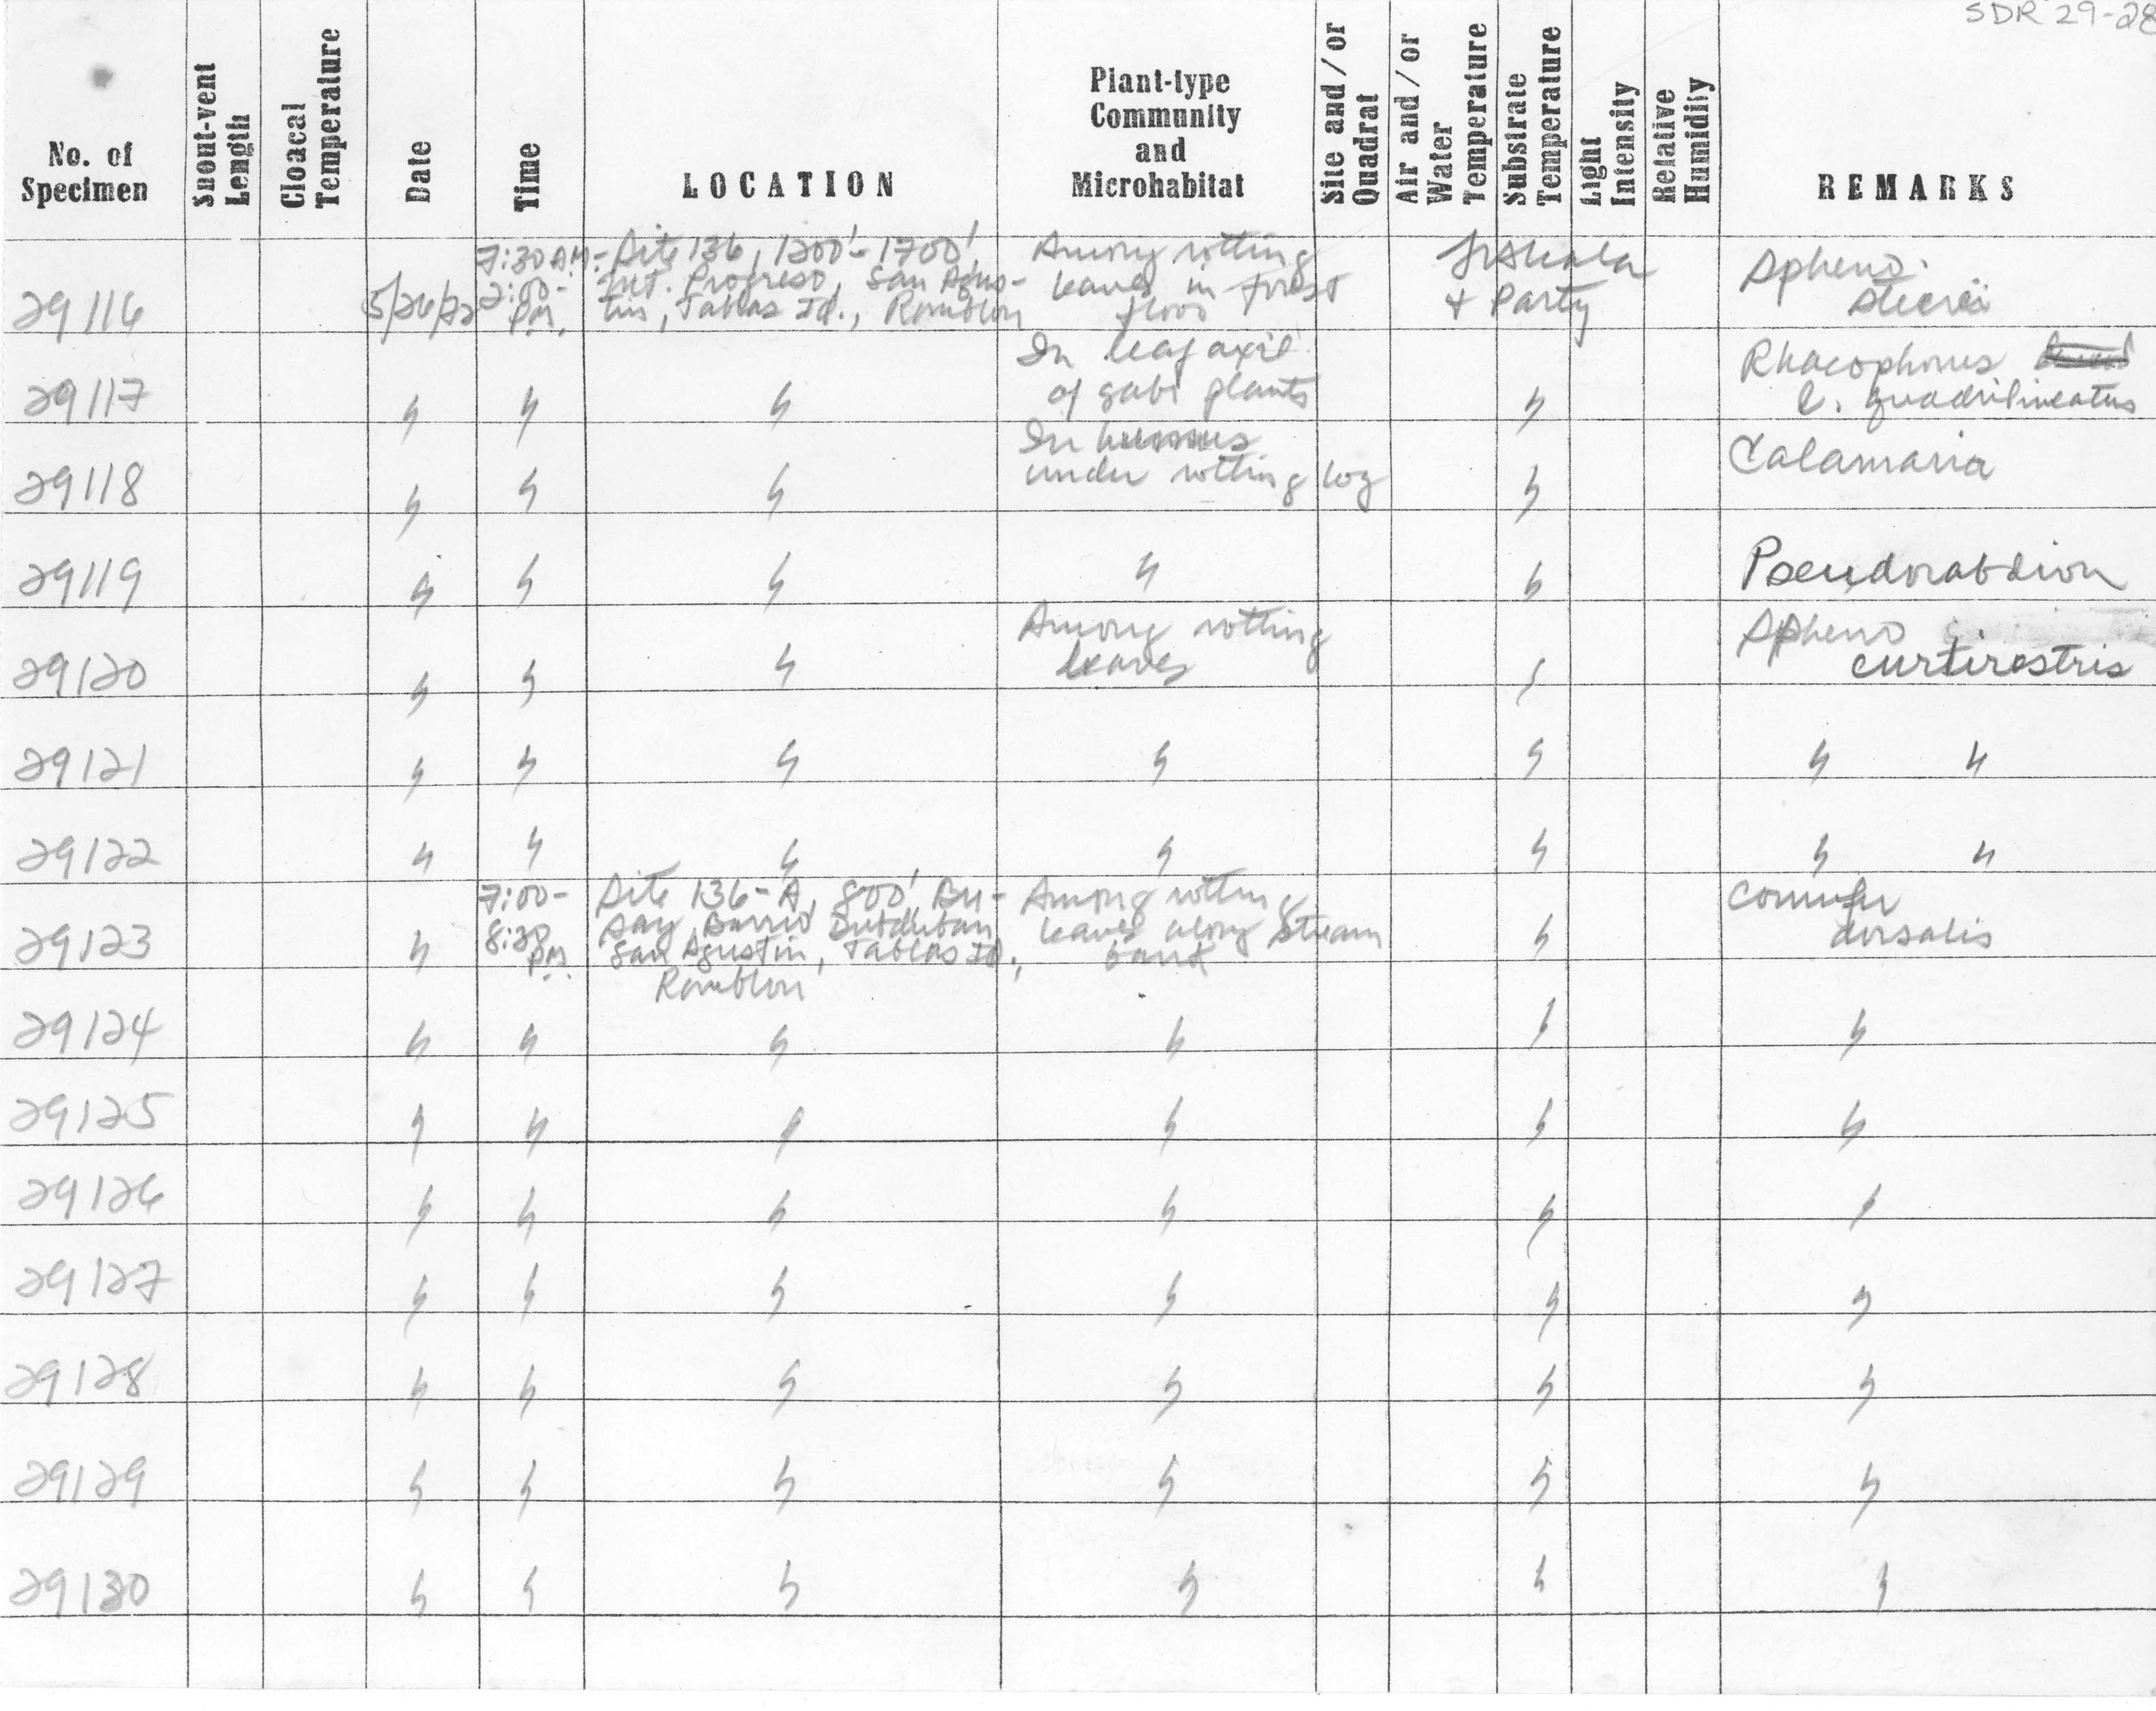 SDR 29-28
No. of Specimen | Snout-vent Length | Cloacal Temperature | Date | Time | LOCATION | Plant-type Community and Microhabitat | Site and/or Quadrat | Air and/or Water Temperature | Substrate Temperature | Light Intensity | Relative Humidity | REMARKS
29116 | 5/26/72 | 7:30 AM- 2:00- P.M. | Site 136, 1200'-1700', Mt. Progreso, San Agus-tin, Tablas Id., Romblon | Among rotting leaves in forest floor | & Party | Spheno. steerei
29117 | " | " | " | In leaf axil of gabi plants | " | Rhacophorus l. quadrilineatus
29118 | " | " | " | In humus under rotting log | " | Calamaria
29119 | " | " | " | " | " | Pseudorabdion
29120 | " | " | " | Among rotting leaves | " | Spheno curtirostris
29121 | " | " | " | " | " | " "
29122 | " | " | " | " | " | " "
29123 | " | 7:00- 8:30 P.M. | Site 136-A, 800', Bu-say, Barrio San Agustin, Tablas Id., Romblon | Among rotting leaves along stream bank | " | Cornufer dorsalis
29124 | " | " | " | " | " | "
29125 | " | " | " | " | " | "
29126 | " | " | " | " | " | "
29127 | " | " | " | " | " | "
29128 | " | " | " | " | " | "
29129 | " | " | " | " | " | "
29130 | " | " | " | " | " | "